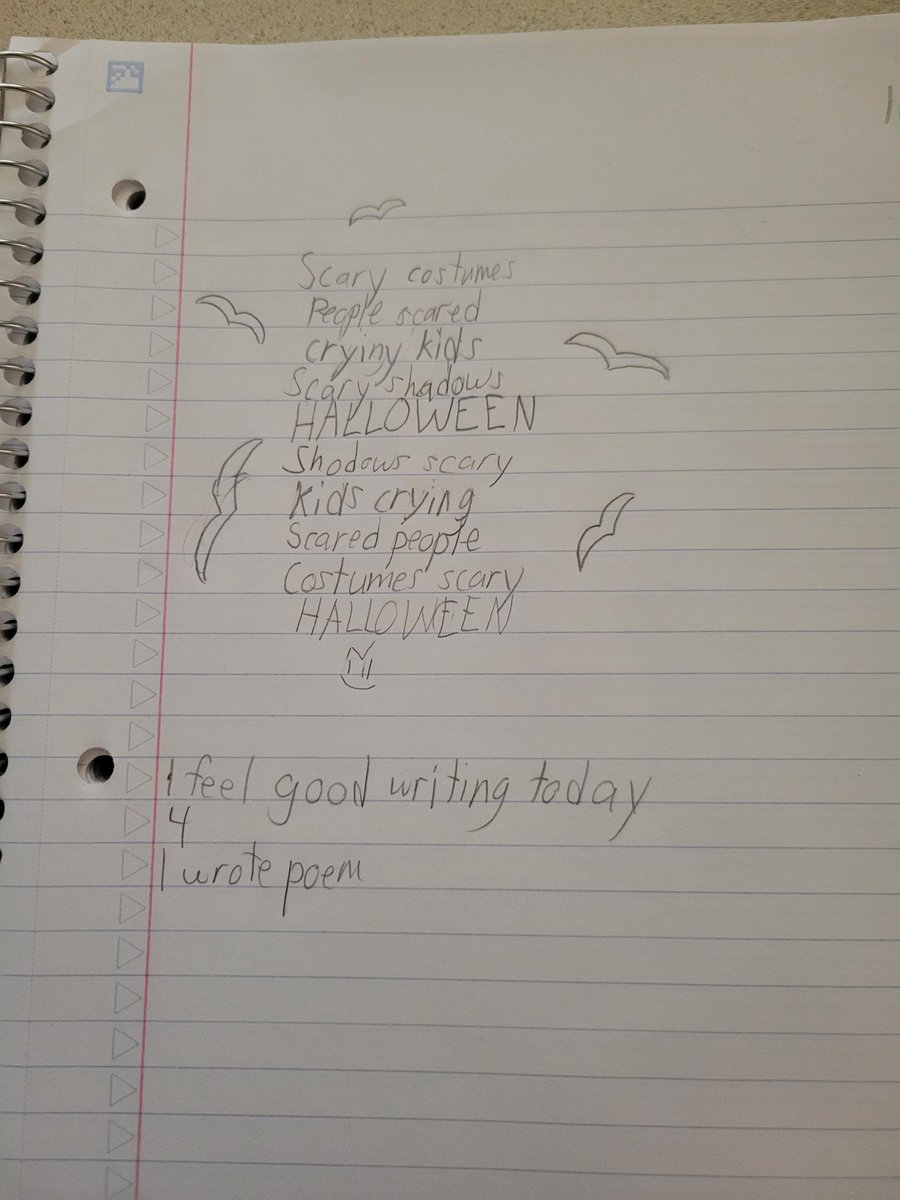 Scary costumes
People scared
crying kids
Scary shadows
HALLOWEEN
Shodows scary
Kids crying
Scared people
Costumes scary
HALLOWEEN
I feel good writing today
4
I wrote poem